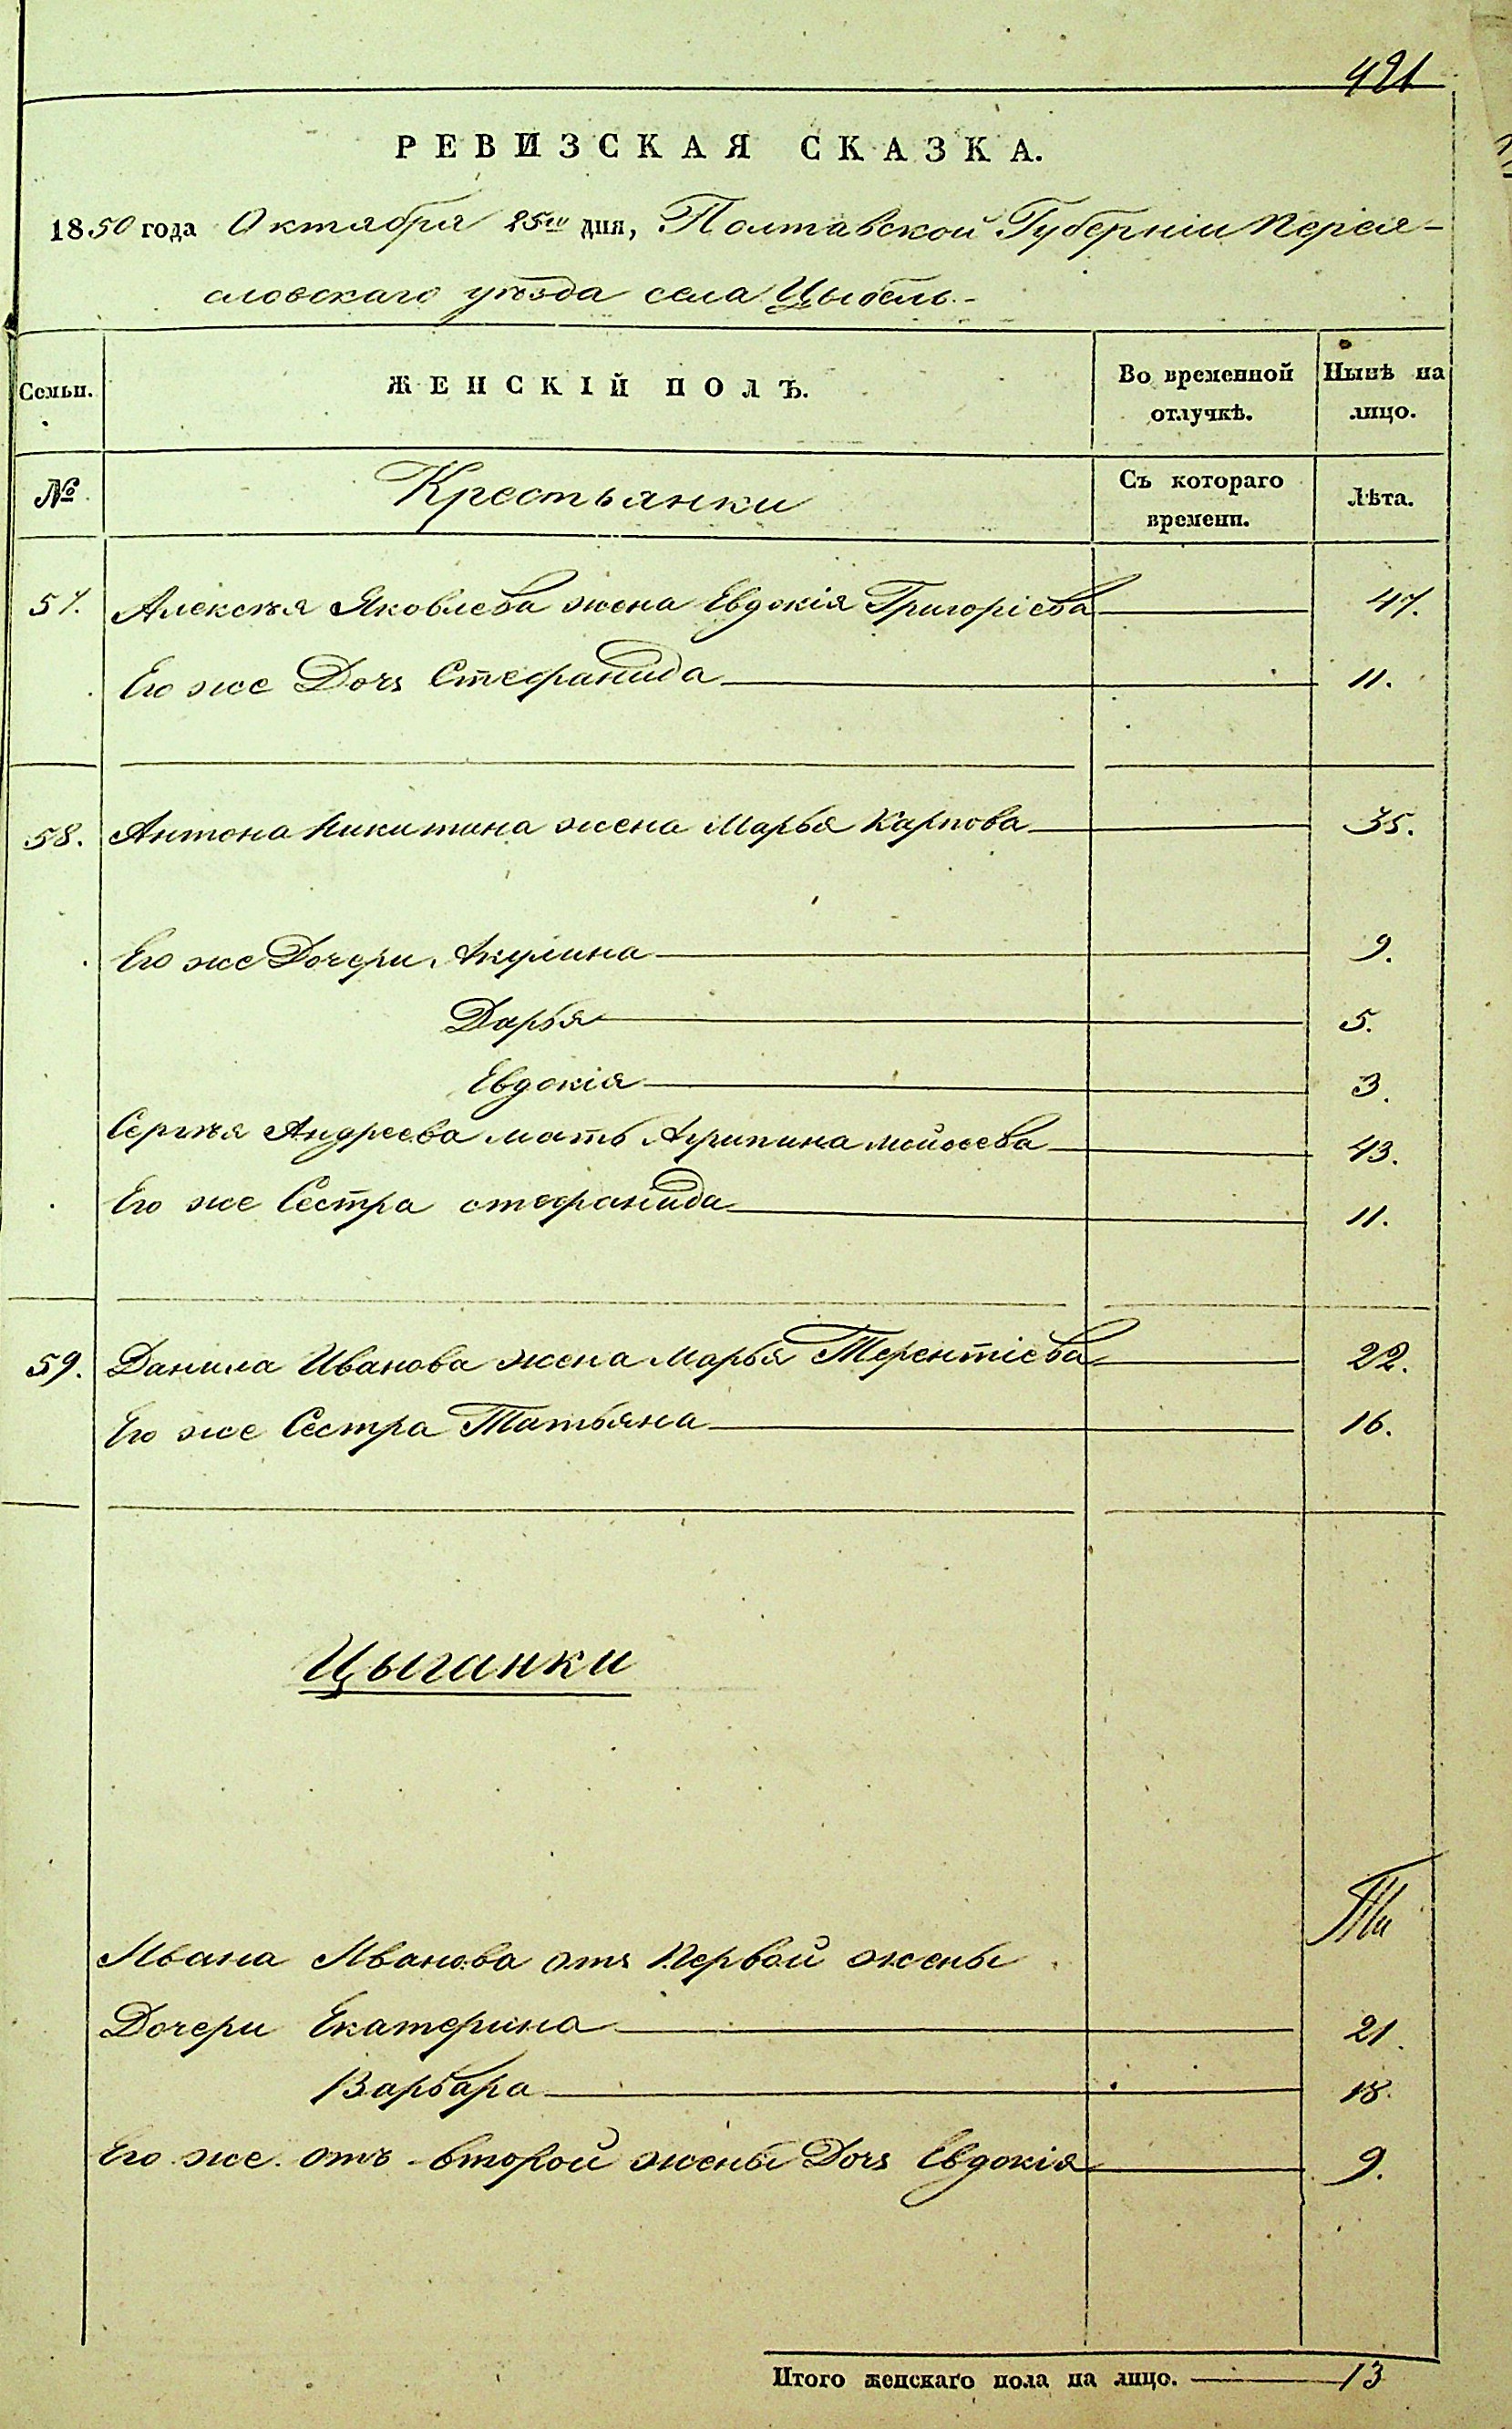 421
РЕВИЗСКАЯ СКАЗКА.
1850 года Октября 25го дня, Полтавской Губерніи Перея-
словскаго уѣзда села Цыбель.-
Семьи. ЖЕНСКІЙ ПОЛЪ. Во временной отлучкѣ. Нынѣ на лицо.
№ Крестьянки Съ котораго времени. Лѣта.
57. Алексѣя Яковлева жена Евдокія Григоріева 47.
Его же Дочь Стефанида 11.
58. Антона Никитина жена Марья Карпова 35.
Его же Дочери Акулина 9.
Дарья 5.
Евдокія 3.
Сергѣя Андреева мать Агрипина мойсеева 43.
Его же Сестра стефанида 11.
59. Данила Иванова жена Марья Терентіева 22.
Его же Сестра Татьяна 16.
Цыганки
Ивана Иванова отъ Первой жены
Дочери Екатерина 21.
Варвара 18.
Его же отъ второй жены Дочь Евдокія 9.
Итого женскаго пола на лицо. 13